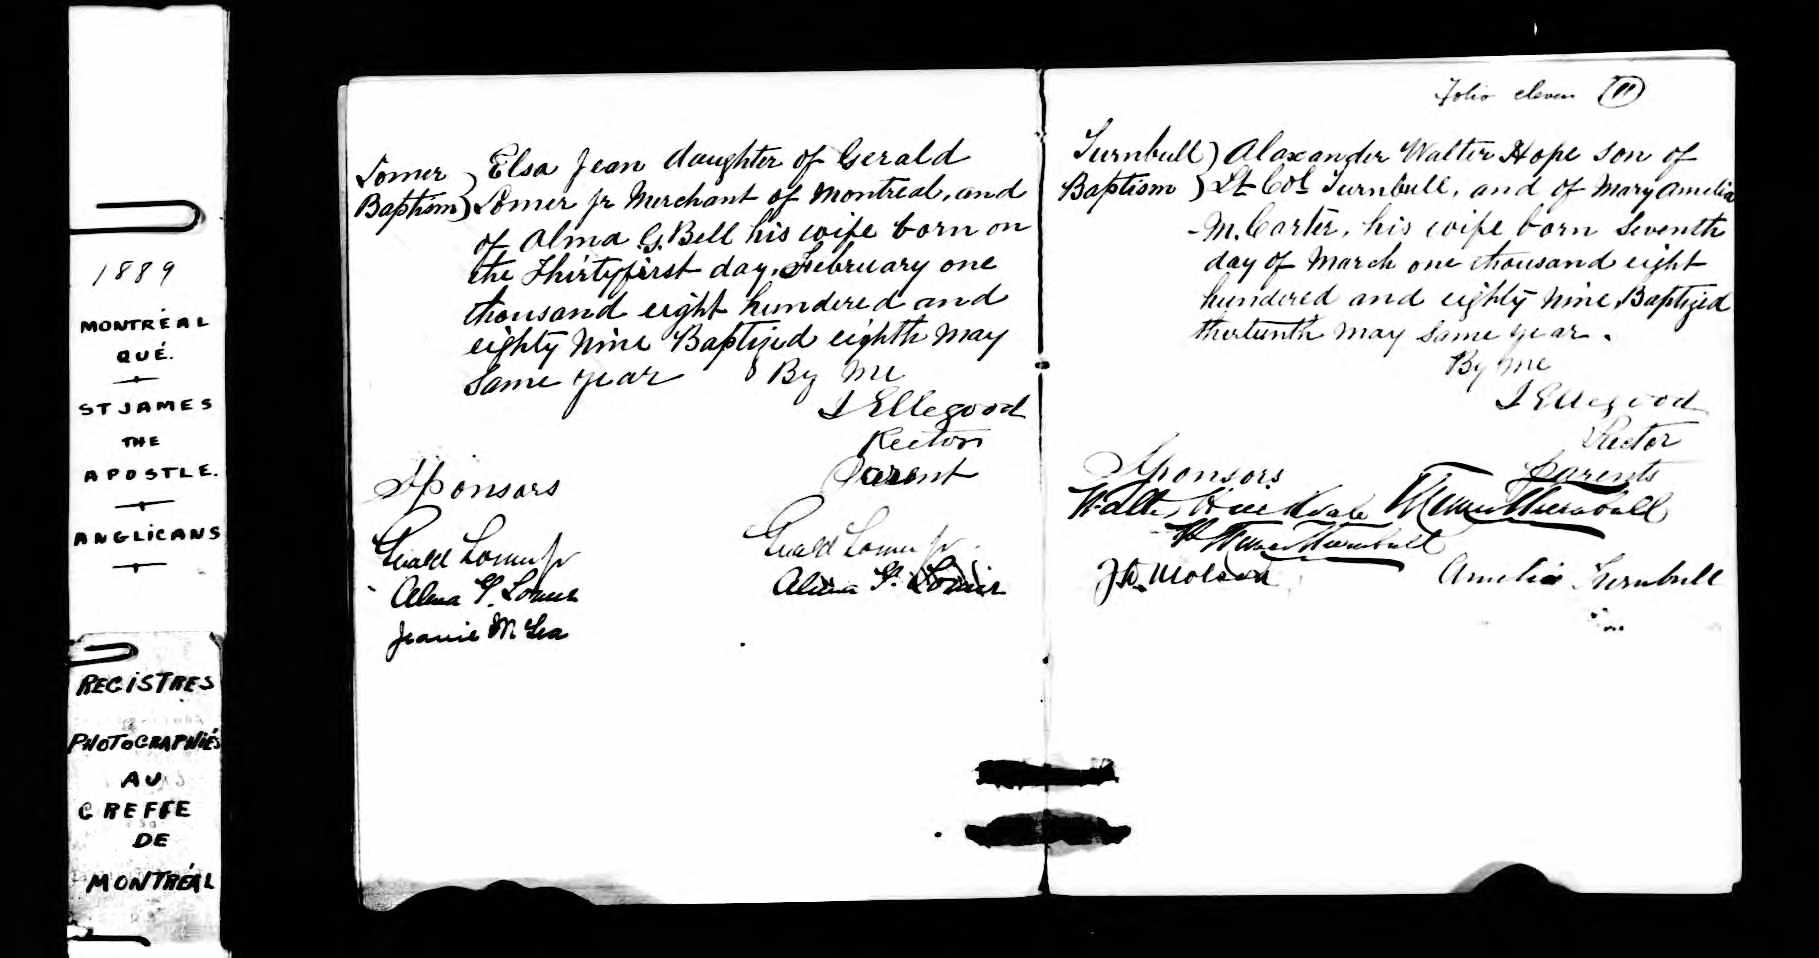 1889
MONTRÉAL
QUÉ.
ST JAMES
THE
APOSTLE.
ANGLICANS
REGISTRES
PHOTOGRAPHIÉS
AU
GREFFE
DE
MONTRÉAL
Lomer
Baptism
Elsa Jean daughter of Gerald
Lomer Jr Merchant of Montreal, and
of Alma G. Bell his wife born on
the Thirtyfirst day, February one
thousand eight hundered and
eighty Nine Baptized eighth May
Same year By Me
J Ellegood
Rector
Sponsors
Parent
Gerald Lomer Jr
Alma G. Lomer
Jeanie McLea
Gerald Lomer Jr.
Alma G. Lomer
Folio eleven 11
Turnbull
Baptism
Alaxander Walter Hope son of
Lt Col Turnbull, and of Mary Amelia
M. Carter, his wife born Seventh
day of March one thousand eight
hundered and eighty Nine Baptized
thirteenth May Same year.
By Me
J Ellegood
Rector
Sponsors
Parents
Walter
Turnbull
Turnbull
Molson
Amelia Turnbull